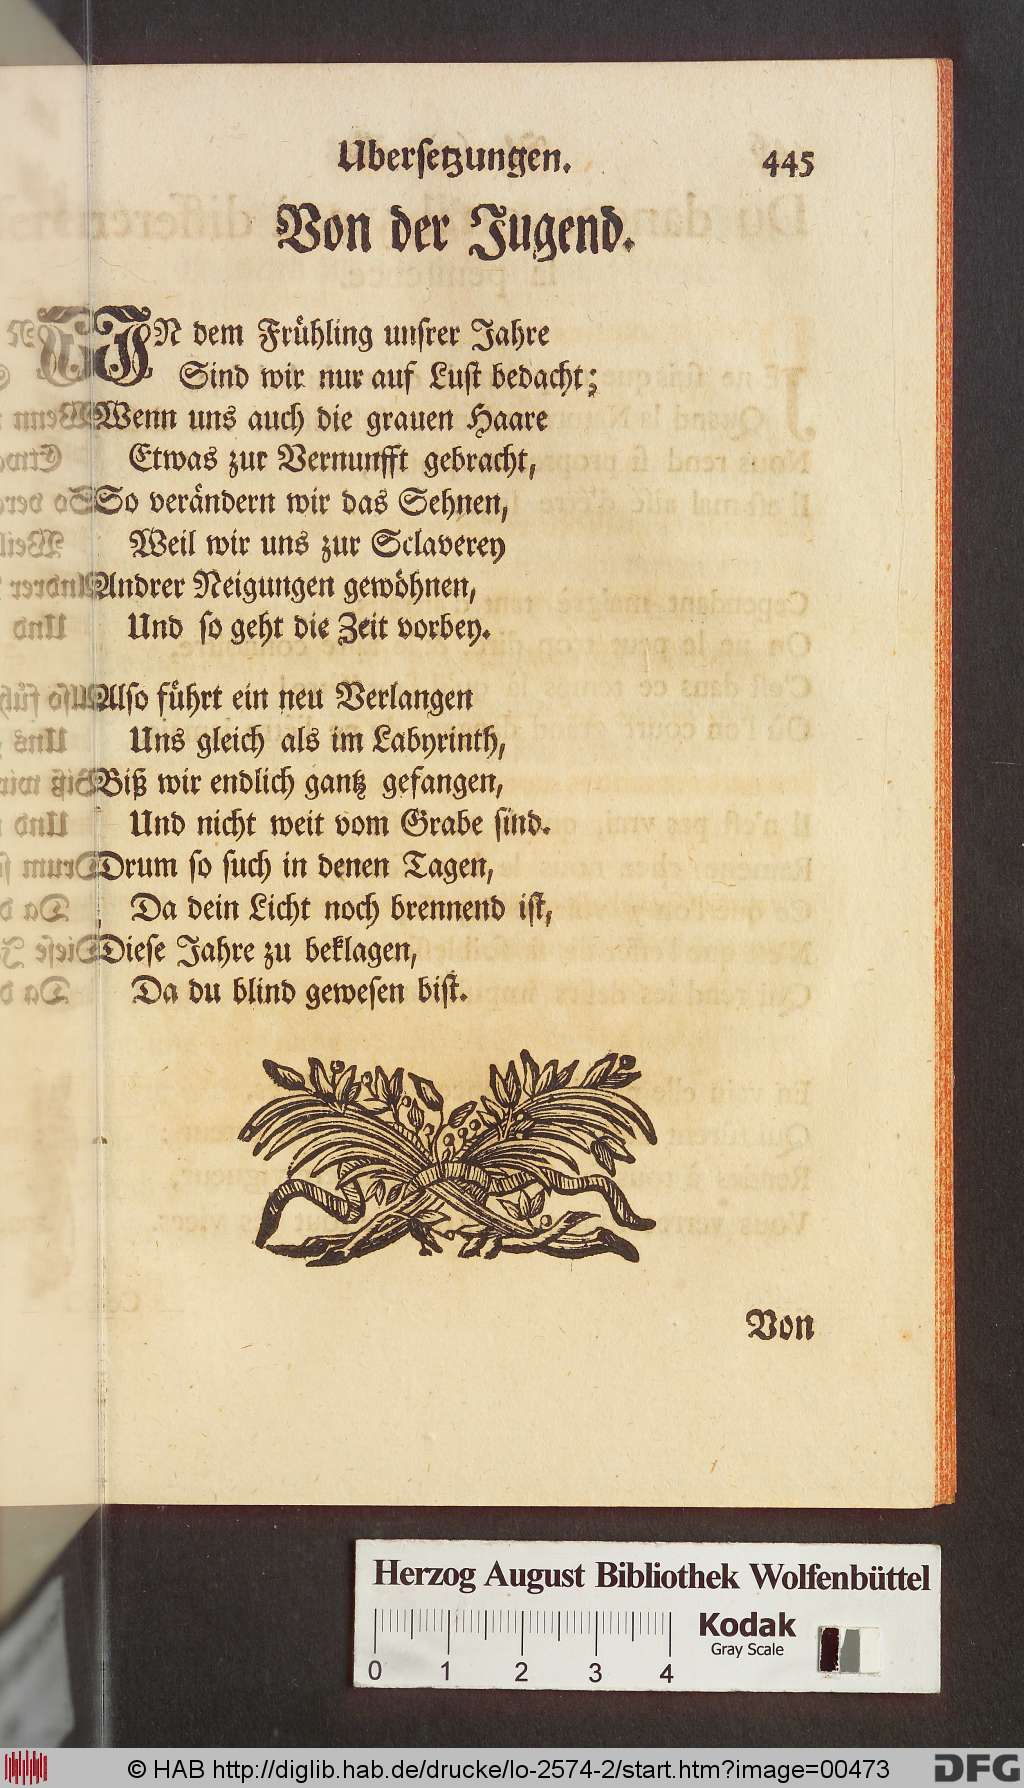 Ubersetzungen. 445
Von der Jugend.
IN dem Frühling unsrer Jahre
Sind wir nur auf Lust bedacht;
Wenn uns auch die grauen Haare
Etwas zur Vernunfft gebracht,
So verändern wir das Sehnen,
Weil wir uns zur Sclaverey
Andrer Neigungen gewöhnen,
Und so geht die Zeit vorbey.
Also führt ein neu Verlangen
Uns gleich als im Labyrinth,
Biß wir endlich gantz gefangen,
Und nicht weit vom Grabe sind.
Drum so such in denen Tagen,
Da dein Licht noch brennend ist,
Diese Jahre zu beklagen,
Da du blind gewesen bist.
Von
Herzog August Bibliothek Wolfenbüttel
Kodak
Gray Scale
0 1 2 3 4
© HAB http://diglib.hab.de/drucke/lo-2574-2/start.htm?image=00473
DFG